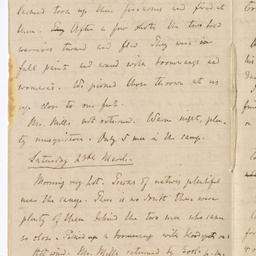 turned took up their firearms and fired at
them. After a few shots the two bold
warriors turned and fled. They were in
full paint and armed with boomerangs and
womeras. We picked those thrown at us
up close to our feet.
Mr. Mills not returned. Warm night, plen-
ty mosquitoes. Only 5 men in the camp.
Saturday 23rd March.
Morning very hot. Tracks of natives plentiful
near the camp. There is no doubt there were
plenty of them behind the two men who came
so close. Picked up a boomerang with
the end. Mr. Mills returned by